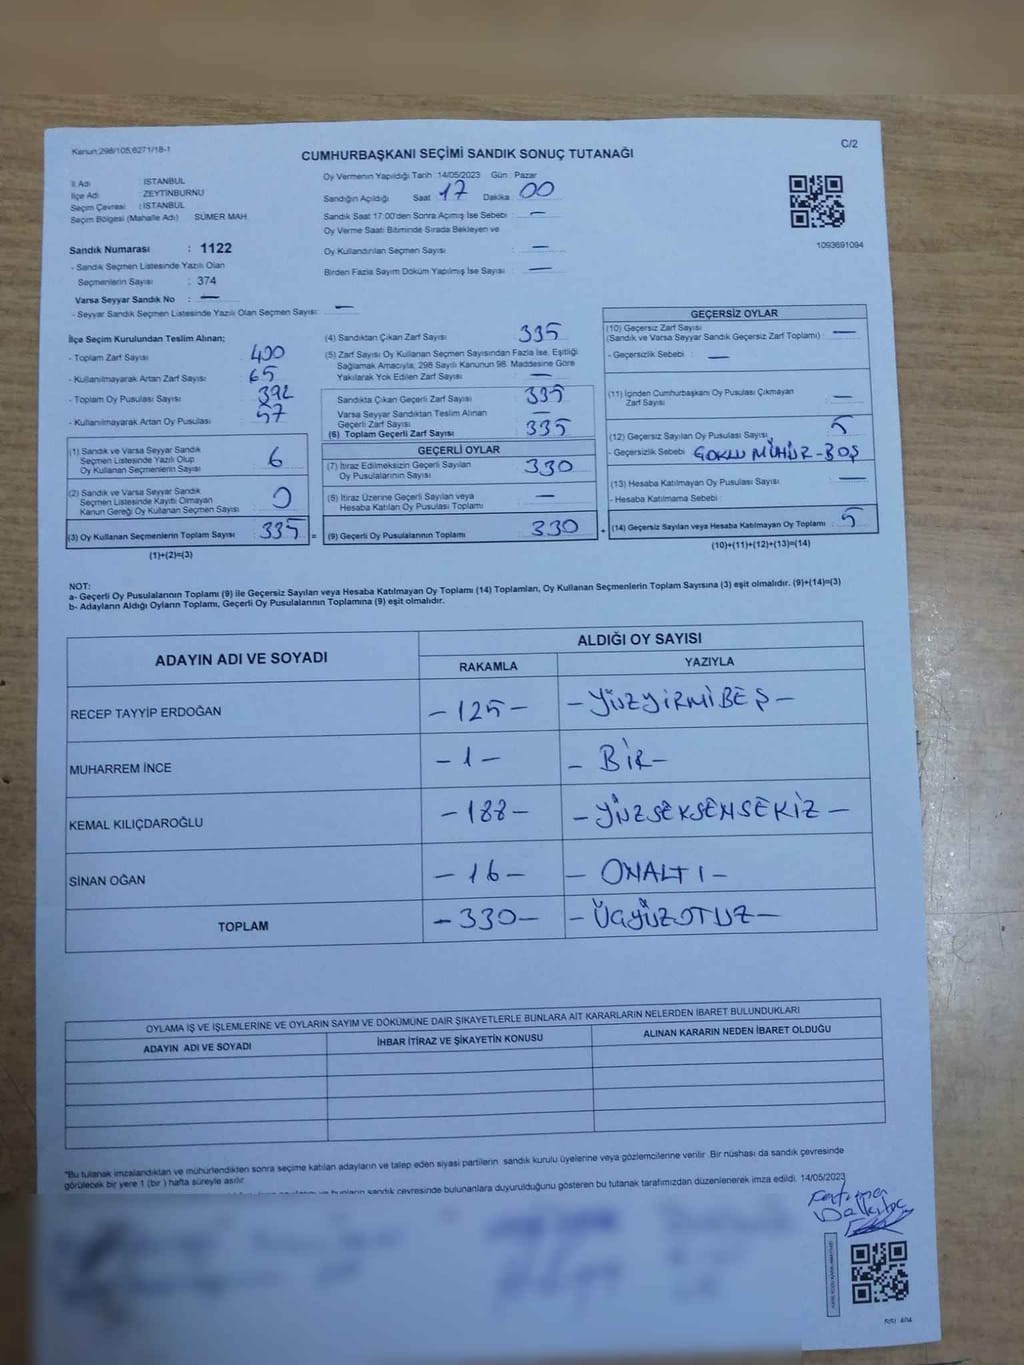 Kanun:298/105,6271/18-1
C/2
CUMHURBAŞKANI SEÇİMİ SANDIK SONUÇ TUTANAĞI
İl Adı : İSTANBUL
İlçe Adı : ZEYTİNBURNU
Seçim Çevresi : İSTANBUL
Seçim Bölgesi (Mahalle Adı) SÜMER MAH.
Oy Vermenin Yapıldığı Tarih :14/05/2023 Gün : Pazar
Sandığın Açıldığı Saat 17 Dakika 00
Sandık Saat 17:00'den Sonra Açımış İse Sebebi : —
Oy Verme Saati Bitiminde Sırada Bekleyen ve
Oy Kullandırılan Seçmen Sayısı : —
Birden Fazla Sayım Döküm Yapılmış İse Sayısı : —
1093691094
Sandık Numarası : 1122
- Sandık Seçmen Listesinde Yazılı Olan
Seçmenlerin Sayısı : 374
Varsa Seyyar Sandık No : —
- Seyyar Sandık Seçmen Listesinde Yazılı Olan Seçmen Sayısı: —
İlçe Seçim Kurulundan Teslim Alınan;
- Toplam Zarf Sayısı : 400
- Kullanılmayarak Artan Zarf Sayısı : 65
- Toplam Oy Pusulası Sayısı : 392
- Kullanılmayarak Artan Oy Pusulası : 57
(1) Sandık ve Varsa Seyyar Sandık
Seçmen Listesinde Yazılı Olup
Oy Kullanan Seçmenlerin Sayısı : 6
(2) Sandık ve Varsa Seyyar Sandık
Seçmen Listesinde Kayıtlı Olmayan
Kanun Gereği Oy Kullanan Seçmen Sayısı : 0
(3) Oy Kullanan Seçmenlerin Toplam Sayısı : 335 =
(1)+(2)=(3)
(4) Sandıktan Çıkan Zarf Sayısı : 335
(5) Zarf Sayısı Oy Kullanan Seçmen Sayısından Fazla İse, Eşitliği
Sağlamak Amacıyla, 298 Sayılı Kanunun 98. Maddesine Göre
Yakılarak Yok Edilen Zarf Sayısı : —
Sandıkta Çıkan Geçerli Zarf Sayısı : 335
Varsa Seyyar Sandıktan Teslim Alınan
Geçerli Zarf Sayısı : —
(6) Toplam Geçerli Zarf Sayısı : 335
GEÇERLİ OYLAR
(7) İtiraz Edilmeksizin Geçerli Sayılan
Oy Pusulalarının Sayısı : 330
(8) İtiraz Üzerine Geçerli Sayılan veya
Hesaba Katılan Oy Pusulası Toplamı : —
(9) Geçerli Oy Pusulalarının Toplamı : 330 +
GEÇERSİZ OYLAR
(10) Geçersiz Zarf Sayısı
(Sandık ve Varsa Seyyar Sandık Geçersiz Zarf Toplamı) : —
- Geçersizlik Sebebi : —
(11) İçinden Cumhurbaşkanı Oy Pusulası Çıkmayan
Zarf Sayısı : —
(12) Geçersiz Sayılan Oy Pusulası Sayısı : 5
- Geçersizlik Sebebi : ÇOKLU MÜHÜR-BOŞ
(13) Hesaba Katılmayan Oy Pusulası Sayısı : —
- Hesaba Katılmama Sebebi :
(14) Geçersiz Sayılan veya Hesaba Katılmayan Oy Toplamı : 5
(10)+(11)+(12)+(13)=(14)
NOT:
a- Geçerli Oy Pusulalarının Toplamı (9) ile Geçersiz Sayılan veya Hesaba Katılmayan Oy Toplamı (14) Toplamları, Oy Kullanan Seçmenlerin Toplam Sayısına (3) eşit olmalıdır. (9)+(14)=(3)
b- Adayların Aldığı Oyların Toplamı, Geçerli Oy Pusulalarının Toplamına (9) eşit olmalıdır.
ADAYIN ADI VE SOYADI
ALDIĞI OY SAYISI
RAKAMLA YAZIYLA
RECEP TAYYİP ERDOĞAN -125- -YÜZYİRMİBEŞ-
MUHARREM İNCE -1- -BİR-
KEMAL KILIÇDAROĞLU -188- -YÜZSEKSENSEKİZ-
SİNAN OĞAN -16- -ONALTI-
TOPLAM -330- -ÜÇYÜZOTUZ-
OYLAMA İŞ VE İŞLEMLERİNE VE OYLARIN SAYIM VE DÖKÜMÜNE DAİR ŞİKAYETLERLE BUNLARA AİT KARARLARIN NELERDEN İBARET BULUNDUKLARI
ADAYIN ADI VE SOYADI İHBAR İTİRAZ VE ŞİKAYETİN KONUSU ALINAN KARARIN NEDEN İBARET OLDUĞU
*Bu tutanak imzalandıktan ve mühürlendikten sonra seçime katılan adayların ve talep eden siyasi partilerin sandık kurulu üyelerine veya gözlemcilerine verilir. Bir nüshası da sandık çevresinde
görülecek bir yere 1 (bir ) hafta süreyle asılır.
bunların sandık çevresinde bulunanlara duyurulduğunu gösteren bu tutanak tarafımızdan düzenlenerek imza edildi. 14/05/2023
Fatma